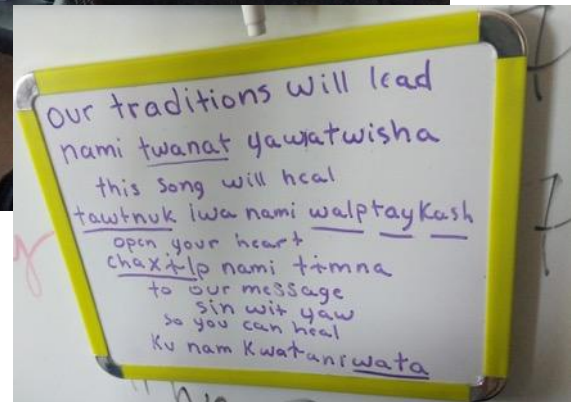 our traditions will lead
nami twanat yawatwisha
this song will heal
tawtnuk iwa nami walptaykash
open your heart
chaxɨlp nami tɨmna
to our message
sin wit yaw
so you can heal
Ku nam Kwatani wata